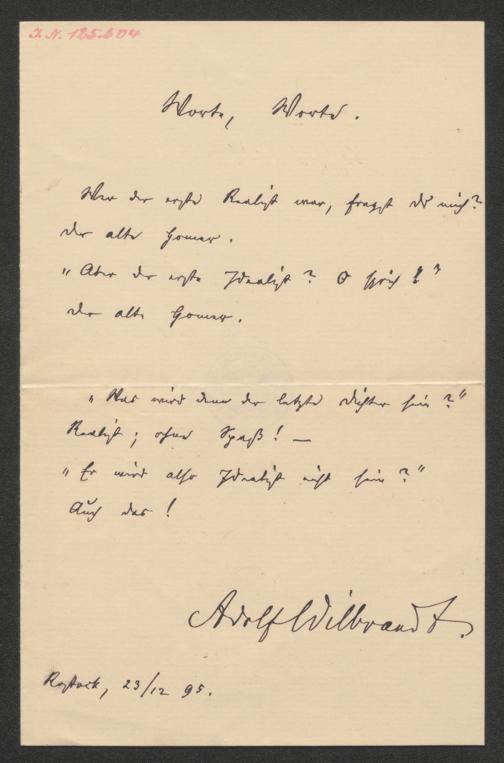 I. N. 125.504
Worte, Worte.
Wer der erste Realist war, fragst du mich?
Der alte Homer.
„Aber der erste Idealist? O sprich!"
Der alte Homer.
„Was wird denn der letzte Dichter sein?"
Realist; ohne Spaß! —
„Er wird also Idealist nicht sein?"
Auch das!
Adolf Wilbrandt.
Rostock, 23/12 95.